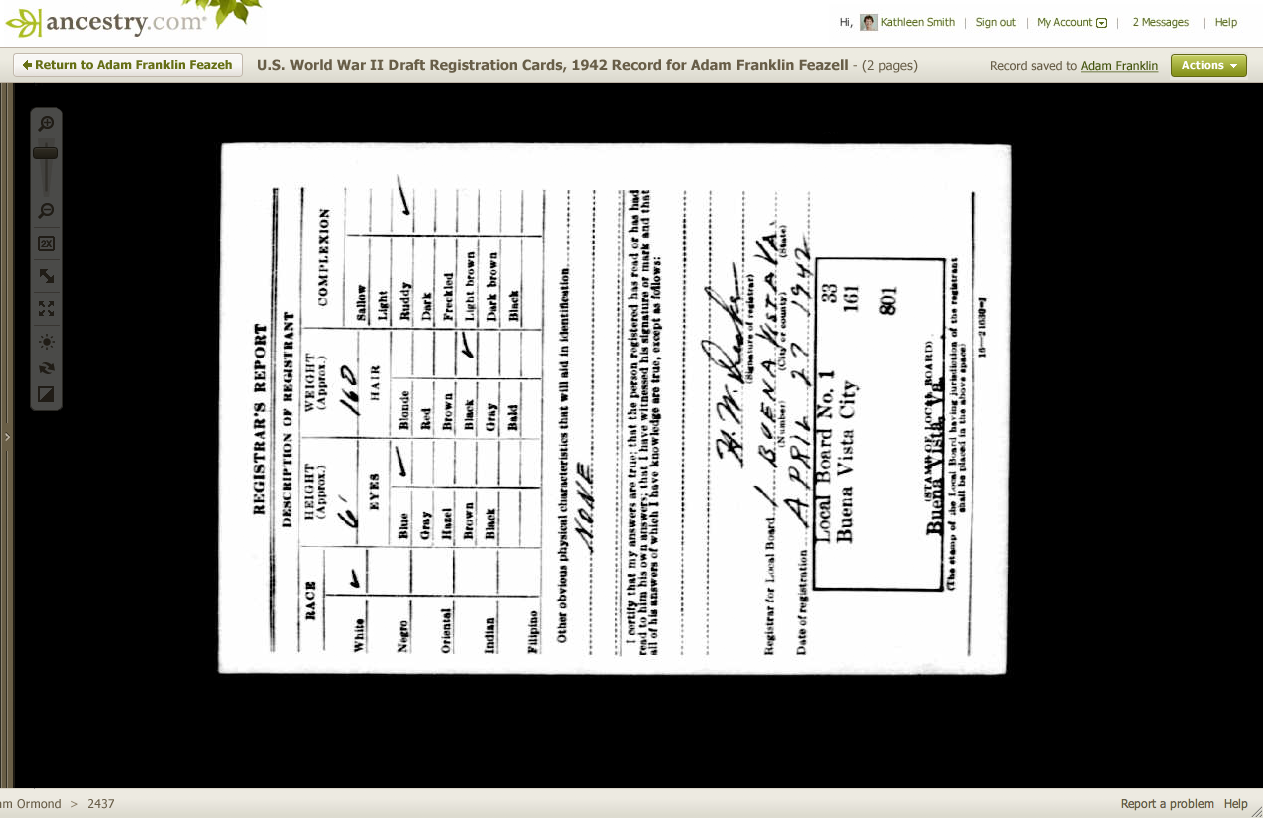 ancestry.com
Hi, Kathleen Smith | Sign out | My Account | 2 Messages | Help
Return to Adam Franklin Feazeh
U.S. World War II Draft Registration Cards, 1942 Record for Adam Franklin Feazell - (2 pages)
Record saved to Adam Franklin
Actions
2X
REGISTRAR'S REPORT
DESCRIPTION OF REGISTRANT
RACE
HEIGHT (Approx.)
WEIGHT (Approx.)
COMPLEXION
White ✓
6'
160
Sallow
EYES
HAIR
Light
Negro
Blue ✓
Blonde
Ruddy ✓
Gray
Red
Dark
Oriental
Hazel
Brown
Freckled
Brown
Black ✓
Light brown
Indian
Black
Gray
Dark brown
Bald
Black
Filipino
Other obvious physical characteristics that will aid in identification
NONE
I certify that my answers are true; that the person registered has read or has had
read to him his own answers; that I have witnessed his signature or mark and that
all of his answers of which I have knowledge are true, except as follows:
H. W.
(Signature of registrar)
Registrar for Local Board 1 BUENA VISTA VA.
(Number) (City or county) (State)
Date of registration APRIL 27 1942
Local Board No. 1 33
Buena Vista City 161
801
(STAMP OF LOCAL BOARD)
Buena Vista, Va.
(The stamp of the Local Board having jurisdiction of the registrant
shall be placed in the above space)
16—21630-1
am Ormond > 2437
Report a problem Help